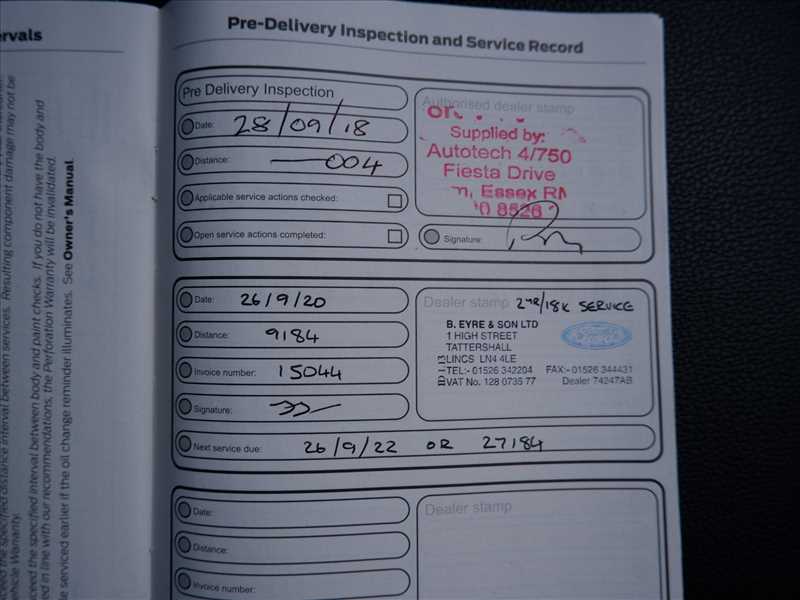 ervals
ceed the specified distance interval between services. Resulting component damage may not be
ehicle Warranty.
ceed the specified interval between body and paint checks. If you do not have the body and
ed in line with our recommendations, the Perforation Warranty will be invalidated.
le serviced earlier if the oil change reminder illuminates. See Owner's Manual.
Pre-Delivery Inspection and Service Record
Pre Delivery Inspection
Date: 28/09/18
Distance: 004
Applicable service actions checked:
Open service actions completed:
Authorised dealer stamp
Supplied by:
Autotech 4/750
Fiesta Drive
m, Essex RM
0 8526
Signature:
Date: 26/9/20
Distance: 9184
Invoice number: 15044
Signature:
Next service due: 26/9/22 OR 27184
Dealer stamp 2YR/18K SERVICE
B. EYRE & SON LTD
1 HIGH STREET
TATTERSHALL
LINCS LN4 4LE
TEL:- 01526 342204 FAX:- 01526 344431
VAT No. 128 0735 77 Dealer 74247AB
Ford
Date:
Distance:
Invoice number:
Dealer stamp